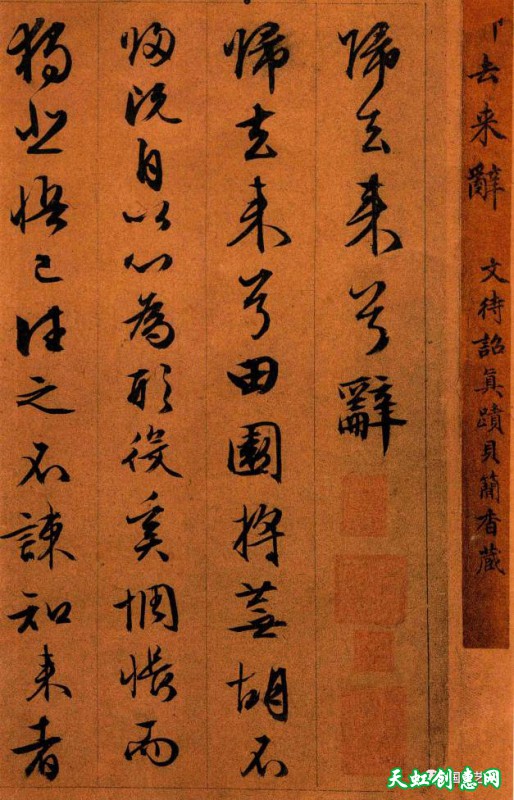 去来辭 文待詔真蹟貝簡香藏
歸去来兮辭
歸去来兮田園将蕪胡不
歸既自以心為形役奚惆悵而
獨悲悟已往之不諫知来者
国艺
天虹创惠网